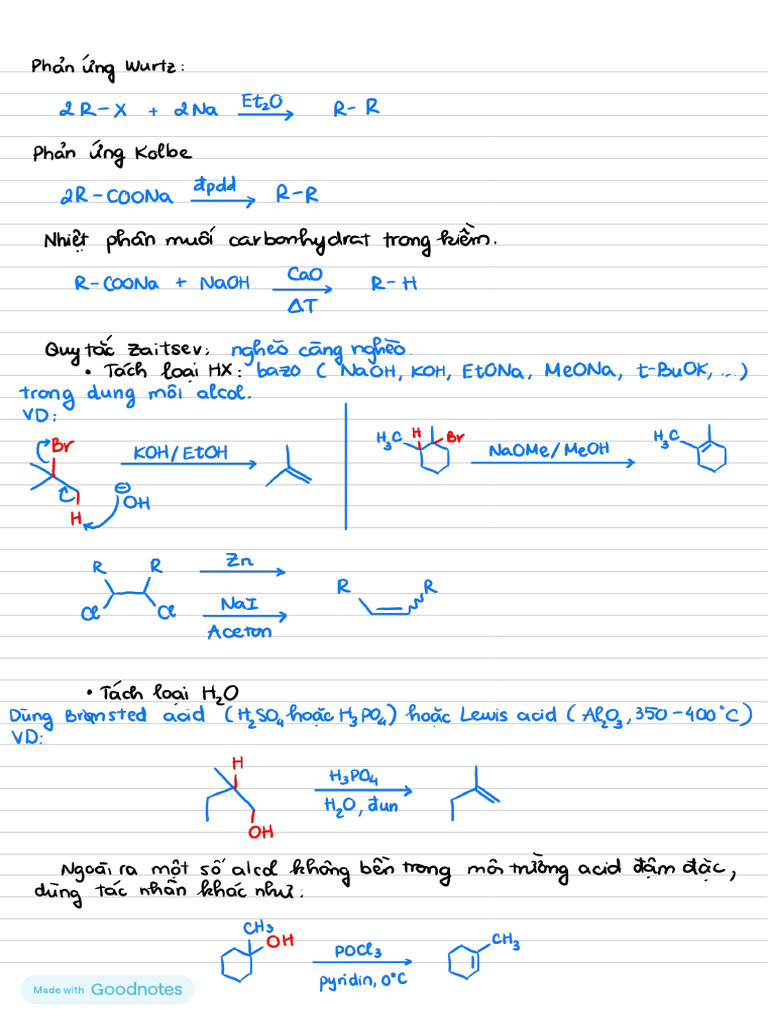 Phản ứng Wurtz:
2R-X + 2Na Et₂O R-R
Phản ứng Kolbe
2R-COONa đpdd R-R
Nhiệt phân muối carbonhydrat trong kiềm.
R-COONa + NaOH CaO R-H
ΔT
Quy tắc Zaitsev: nghèo càng nghèo.
• Tách loại HX: bazơ (NaOH, KOH, EtONa, MeONa, t-BuOK, ...)
trong dung môi alcol.
VD:
Br KOH/EtOH
⊖OH
H
H₃C H Br NaOMe/MeOH H₃C
R R Zn R R
Cl Cl NaI
Aceton
• Tách loại H₂O
Dùng Brønsted acid (H₂SO₄ hoặc H₃PO₄) hoặc Lewis acid (Al₂O₃, 350-400°C)
VD:
H H₃PO₄
H₂O, đun
OH
Ngoài ra một số alcol không bền trong môi trường acid đậm đặc,
dùng tác nhân khác như:
CH₃ OH POCl₃ CH₃
pyridin, 0°C
Made with Goodnotes